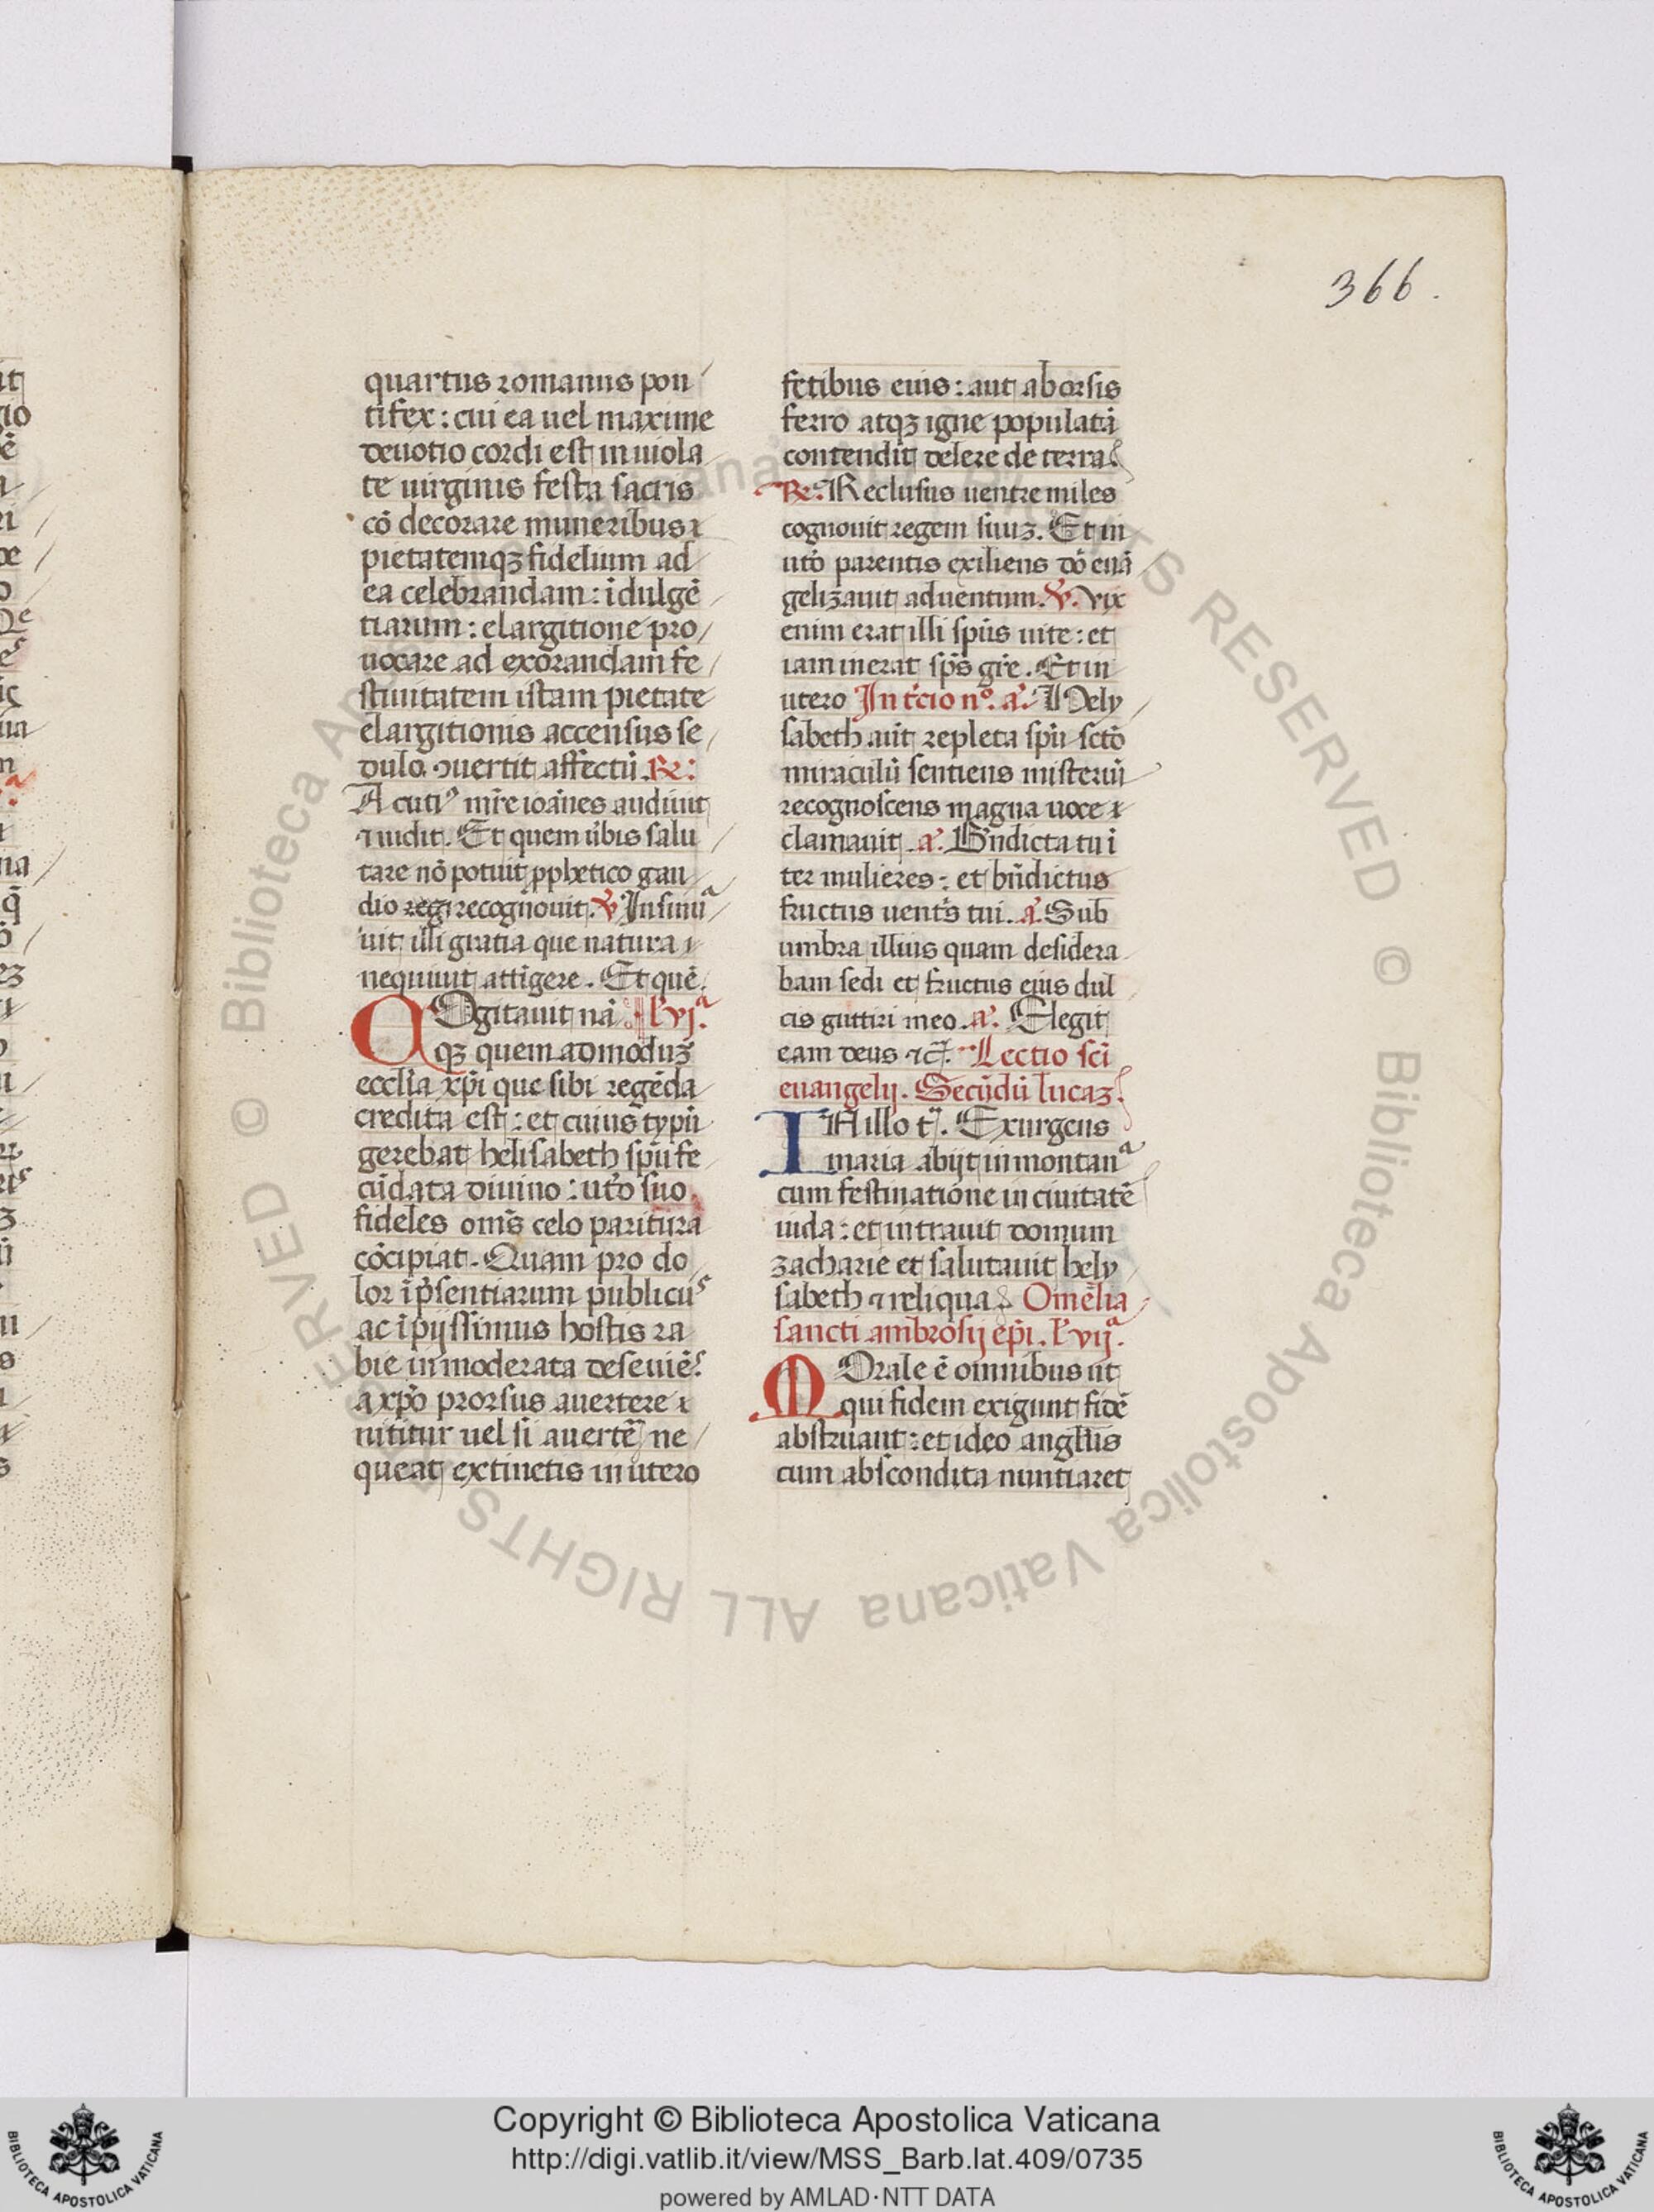 366.
quartus romanus pon
tifex : cui ea uel maxime
deuotio cordi est inuiola
te uirginis festa sacris
cō decorare muneribus
pietatemqꝫ fidelium ad
ea celebrandam : īdulgē
tiarum : elargitione pro
uocare ad exorandam fe
stiuitatem istam pietate
elargitionis accensus se
dulo ꝯuertit affectū . ℞:
Acutiꝰ mr̄e ioānes audiuit
⁊ uidit. Et quem ūbis salu
tare nō potuit ꝓphetico gau
dio regē recognouit. ℣ Insinu
uit illi gratia que natura
nequiuit attīgere . Et quē.
COgitauit nā l'.vjª.
qꝫ quemadmoduꝫ
eccl̄ia xp̄i que sibi regēda
credita est : et cuius typū
gerebat helisabeth sp̄u fe
cūdata diuino : ut̄o suo
fideles om̄s celo paritura
cōcipiat. Quam pro do
lor ī p̄sentiarum publicuˢ
ac īpijssimus hostis ra
bie inmoderata deseuiēˢ
a xp̄o prorsus auertere
nititur uel si auertē ne
queat extinctis in utero
fetibus eius : aut aborsis
ferro atqꝫ igne populatā
contendit delere de terra.
℞. Reclusus uentre miles
cognouit regem suuꝫ. Et in
ut̄o parentis exiliens dō euā
gelizauit aduentum. ℣. Vix
enim erat illi sp̄us uite : et
iam inerat sp̄s gr̄e . Et in
utero In t̄cio nº. aª. Hely
sabeth aūt repleta sp̄u sctō
miraculū sentiens misteriū
recognoscens magna uoce
clamauit . aª. Bn̄dicta tu ī
ter mulieres : et bn̄dictus
fructus uent̄s tui . aª. Sub
umbra illius quam desidera
bam sedi et fructus eius dul
cis gutturi meo . aª. Elegit
eam deus ⁊c̄. Lectio sc̄i
euangelij. Secūdū lucaꝫ.
IN illo t̄. Exurgens
maria abijt in montanª
cum festinatione in ciuitatē
iuda : et intrauit domum
zacharie et salutauit hely
sabeth ⁊ reliqua. Omēlia
sancti ambrosij ep̄i . l'.vijª.
MOrale ē omnibus ut
qui fidem exigunt fidē
abstruant : et ideo angl̄us
cum abscondita nuntiaret
Copyright © Biblioteca Apostolica Vaticana
http://digi.vatlib.it/view/MSS_Barb.lat.409/0735
powered by AMLAD·NTT DATA